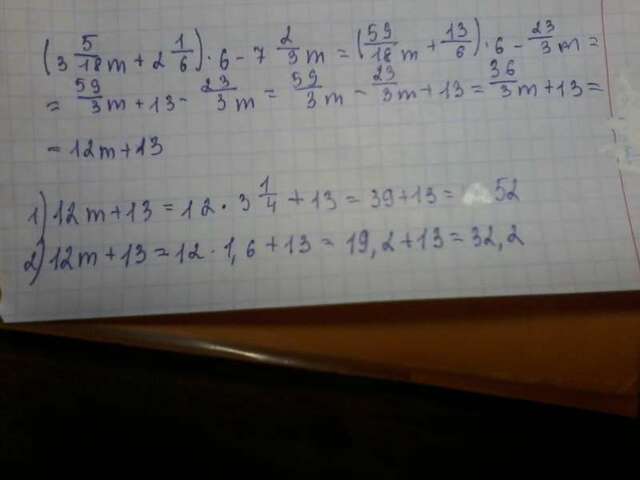 (3 5/18 m + 2 1/6) · 6 - 7 2/3 m = (59/18 m + 13/6) · 6 - 23/3 m =
= 59/3 m + 13 - 23/3 m = 59/3 m - 23/3 m + 13 = 36/3 m + 13 =
= 12m + 13
1) 12m + 13 = 12 · 3 1/4 + 13 = 39 + 13 = 52
2) 12m + 13 = 12 · 1,6 + 13 = 19,2 + 13 = 32,2